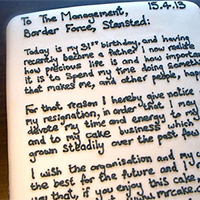 To The Management, 15.4.13
Border Force, Stansted:
Today is my 31st birthday, and having
recently become a father I now realise
how precious life is and how important
it is to spend my time doing something
that makes me, and other people, happy
For that reason I hereby give notice
my resignation, in order that I may
devote my time and energy to my
and to my cake business which
grown steadily over the past few
I wish the organisation and my
the best for the future and
you that, if you enjoy this cake
mrcake.c